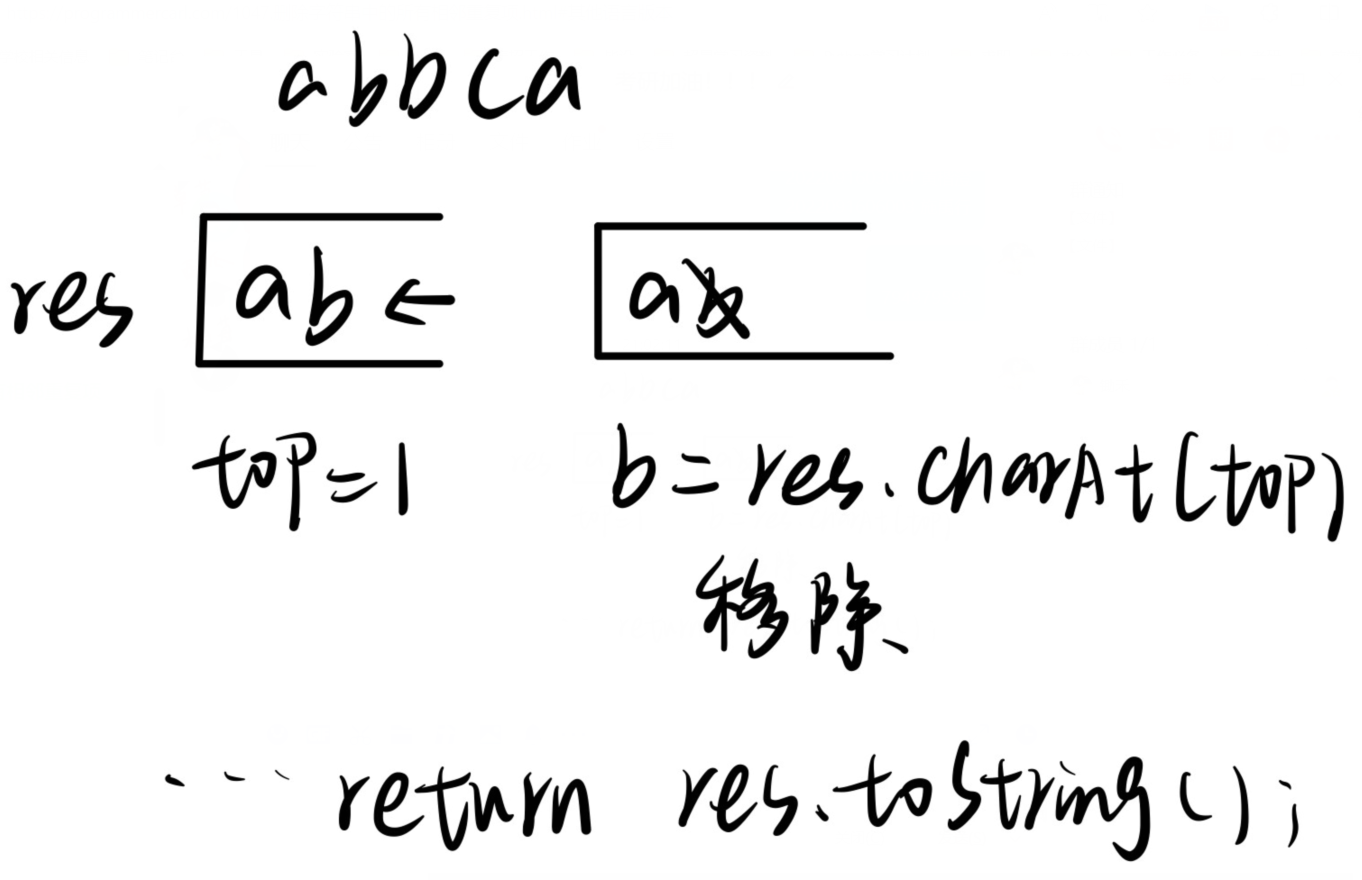 abbca
res ab ← ab
top=1 b=res.charAt(top)
移除
... return res.toString();